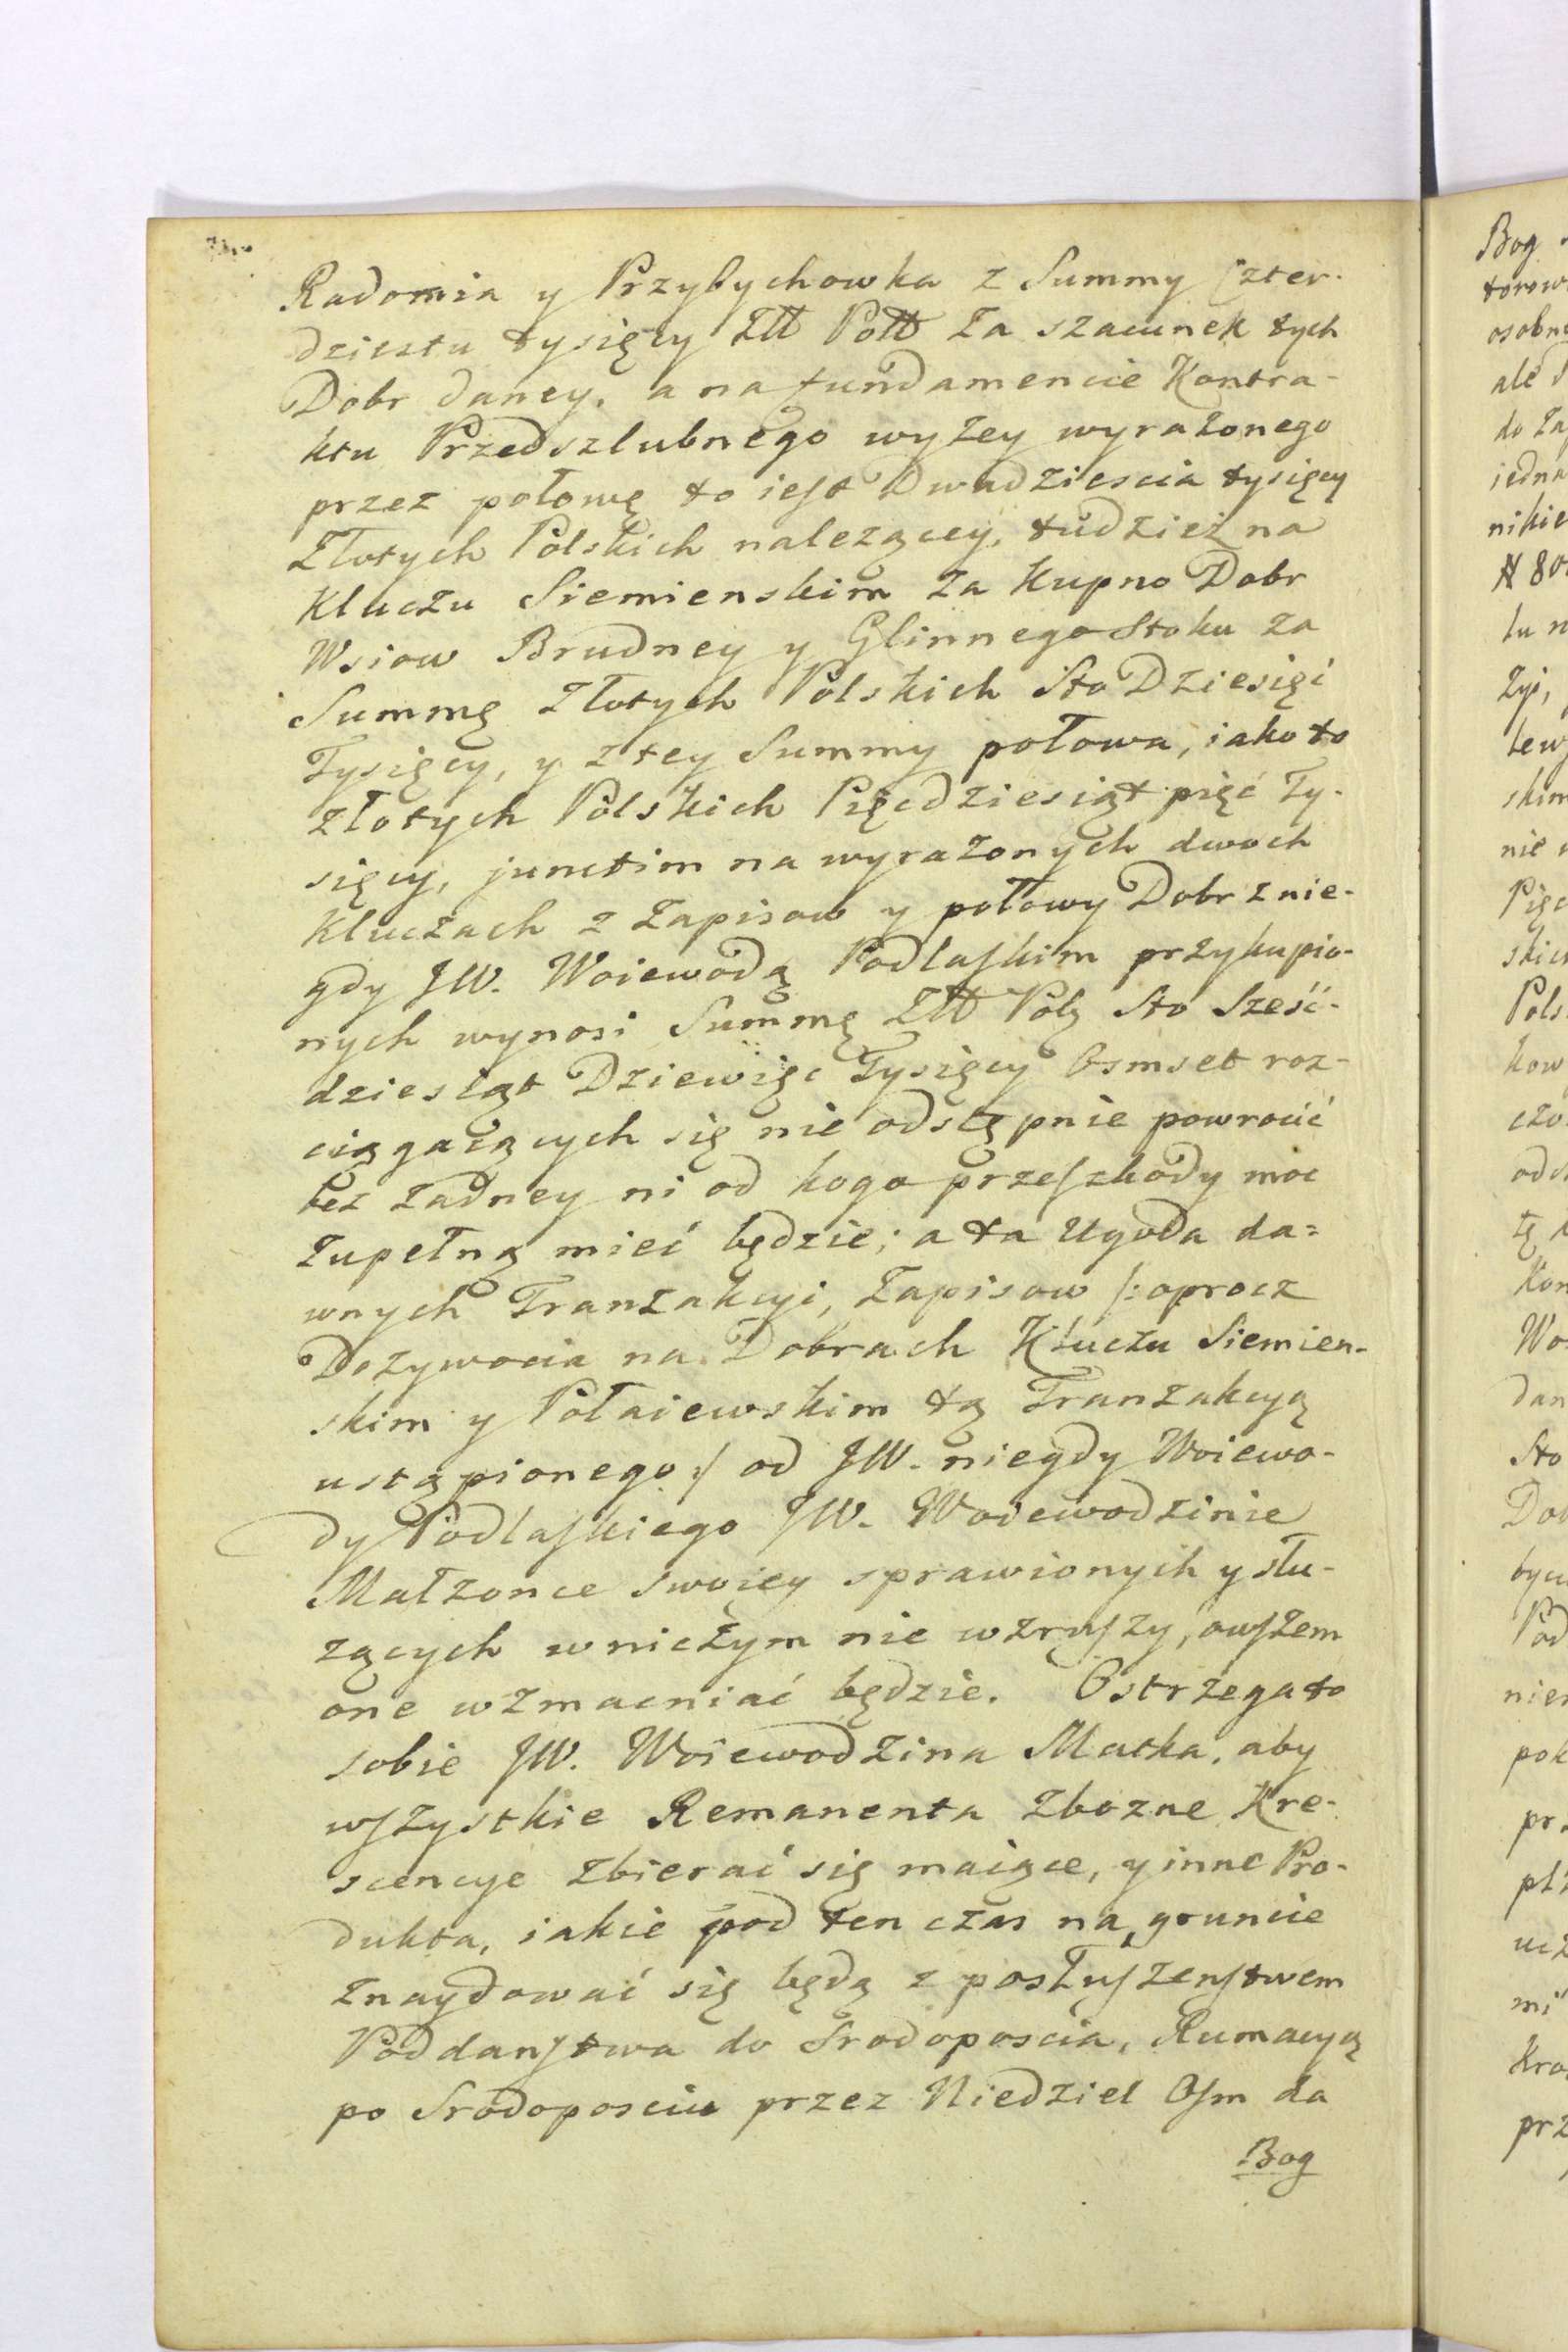 Radomia y Przybychowka z Summy Czter-
dziestu tysięcy Złł Poll Za szacunek tych
Dobr daney, a na fundamencie Kontra-
ktu Przedszlubnego wyżey wyrażonego
przez połowę to iest Dwadziescia tysięcy
Złotych Polskich nalezącey, tudzież na
Kluczu Siemienskim za kupno Dobr
Wsiow Brudney y Glinnego Stoku za
Summę Złotych Polskich Sto Dziesięć
Tysięcy, y z tey Summy połowa, iako to
złotych Polskich Pięcdziesiąt pięć Ty-
sięcy, junctim na wyrażonych dwoch
Kluczach z Zapisow y połowy Dobr z nie-
gdy JW. Woiewodą Podlaskim przykupio-
nych wynosi Summę Złł Pols Sto Sześć-
dziesiąt Dziewięc Tysięcy Osmset roz-
ciągaiących się nie odstępnie powrocić
bez żadney ni od kogo przeszkody moc
Zupełną mieć będzie; a ta Ugoda da=
wnych Tranzakcyi, Zapisow /: oprocz
Dożywocia na Dobrach Kluczu Siemien-
skim y Połaiewskim tą Tranzakcyą
ustąpionego :/ od JW. niegdy Woiewo-
dy Podlaskiego JW. Woiewodzinie
Małzonce swoiey sprawionych y słu-
zących w niczym nie wzruszy, owszem
one wzmacniać będzie. Ostrzega to
sobie JW. Woiewodzina Matka, aby
wszystkie Remanenta Zbozne Kre-
scencye zbierać się maiące, y inne Pro-
dukta, iakie pod ten czas na gruncie
znaydować się będą z posłuszenstwem
Poddanstwa do Srodoposcia, Rumacyą
po Srodoposciu przez Niedziel Osm da
Bog
Bog
osobn
ale
do Za
iedna
nikie
lu
Zyi,
skim
nie
Pięc
skich
Pols
kow
czo
tę
Kon
Wo
dan
Sto
Pod
nie
pok
pr
mi
Kro
prz